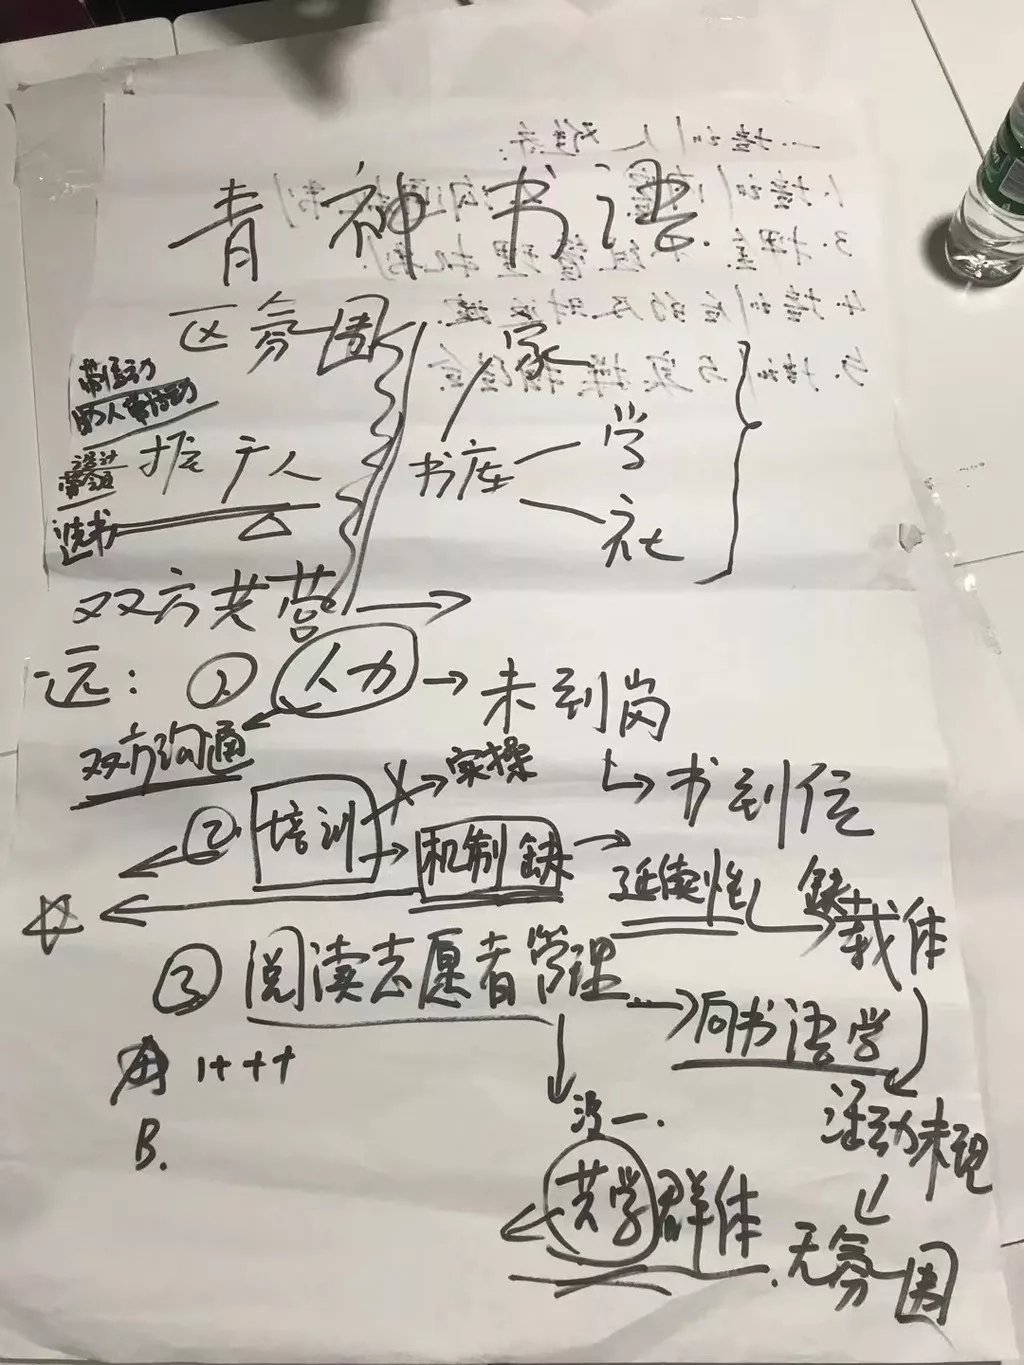 青神书语
区氛围
家
带活动
推广人
书店
学
选书
社
双方共营
远: ① 人力 → 未到岗
双方沟通
实操
书到位
② 培训
机制缺
延续性
缺载体
③ 阅读志愿者管理
向书语学
1+++
B.
活动未现
没一.
共学群体
无氛围